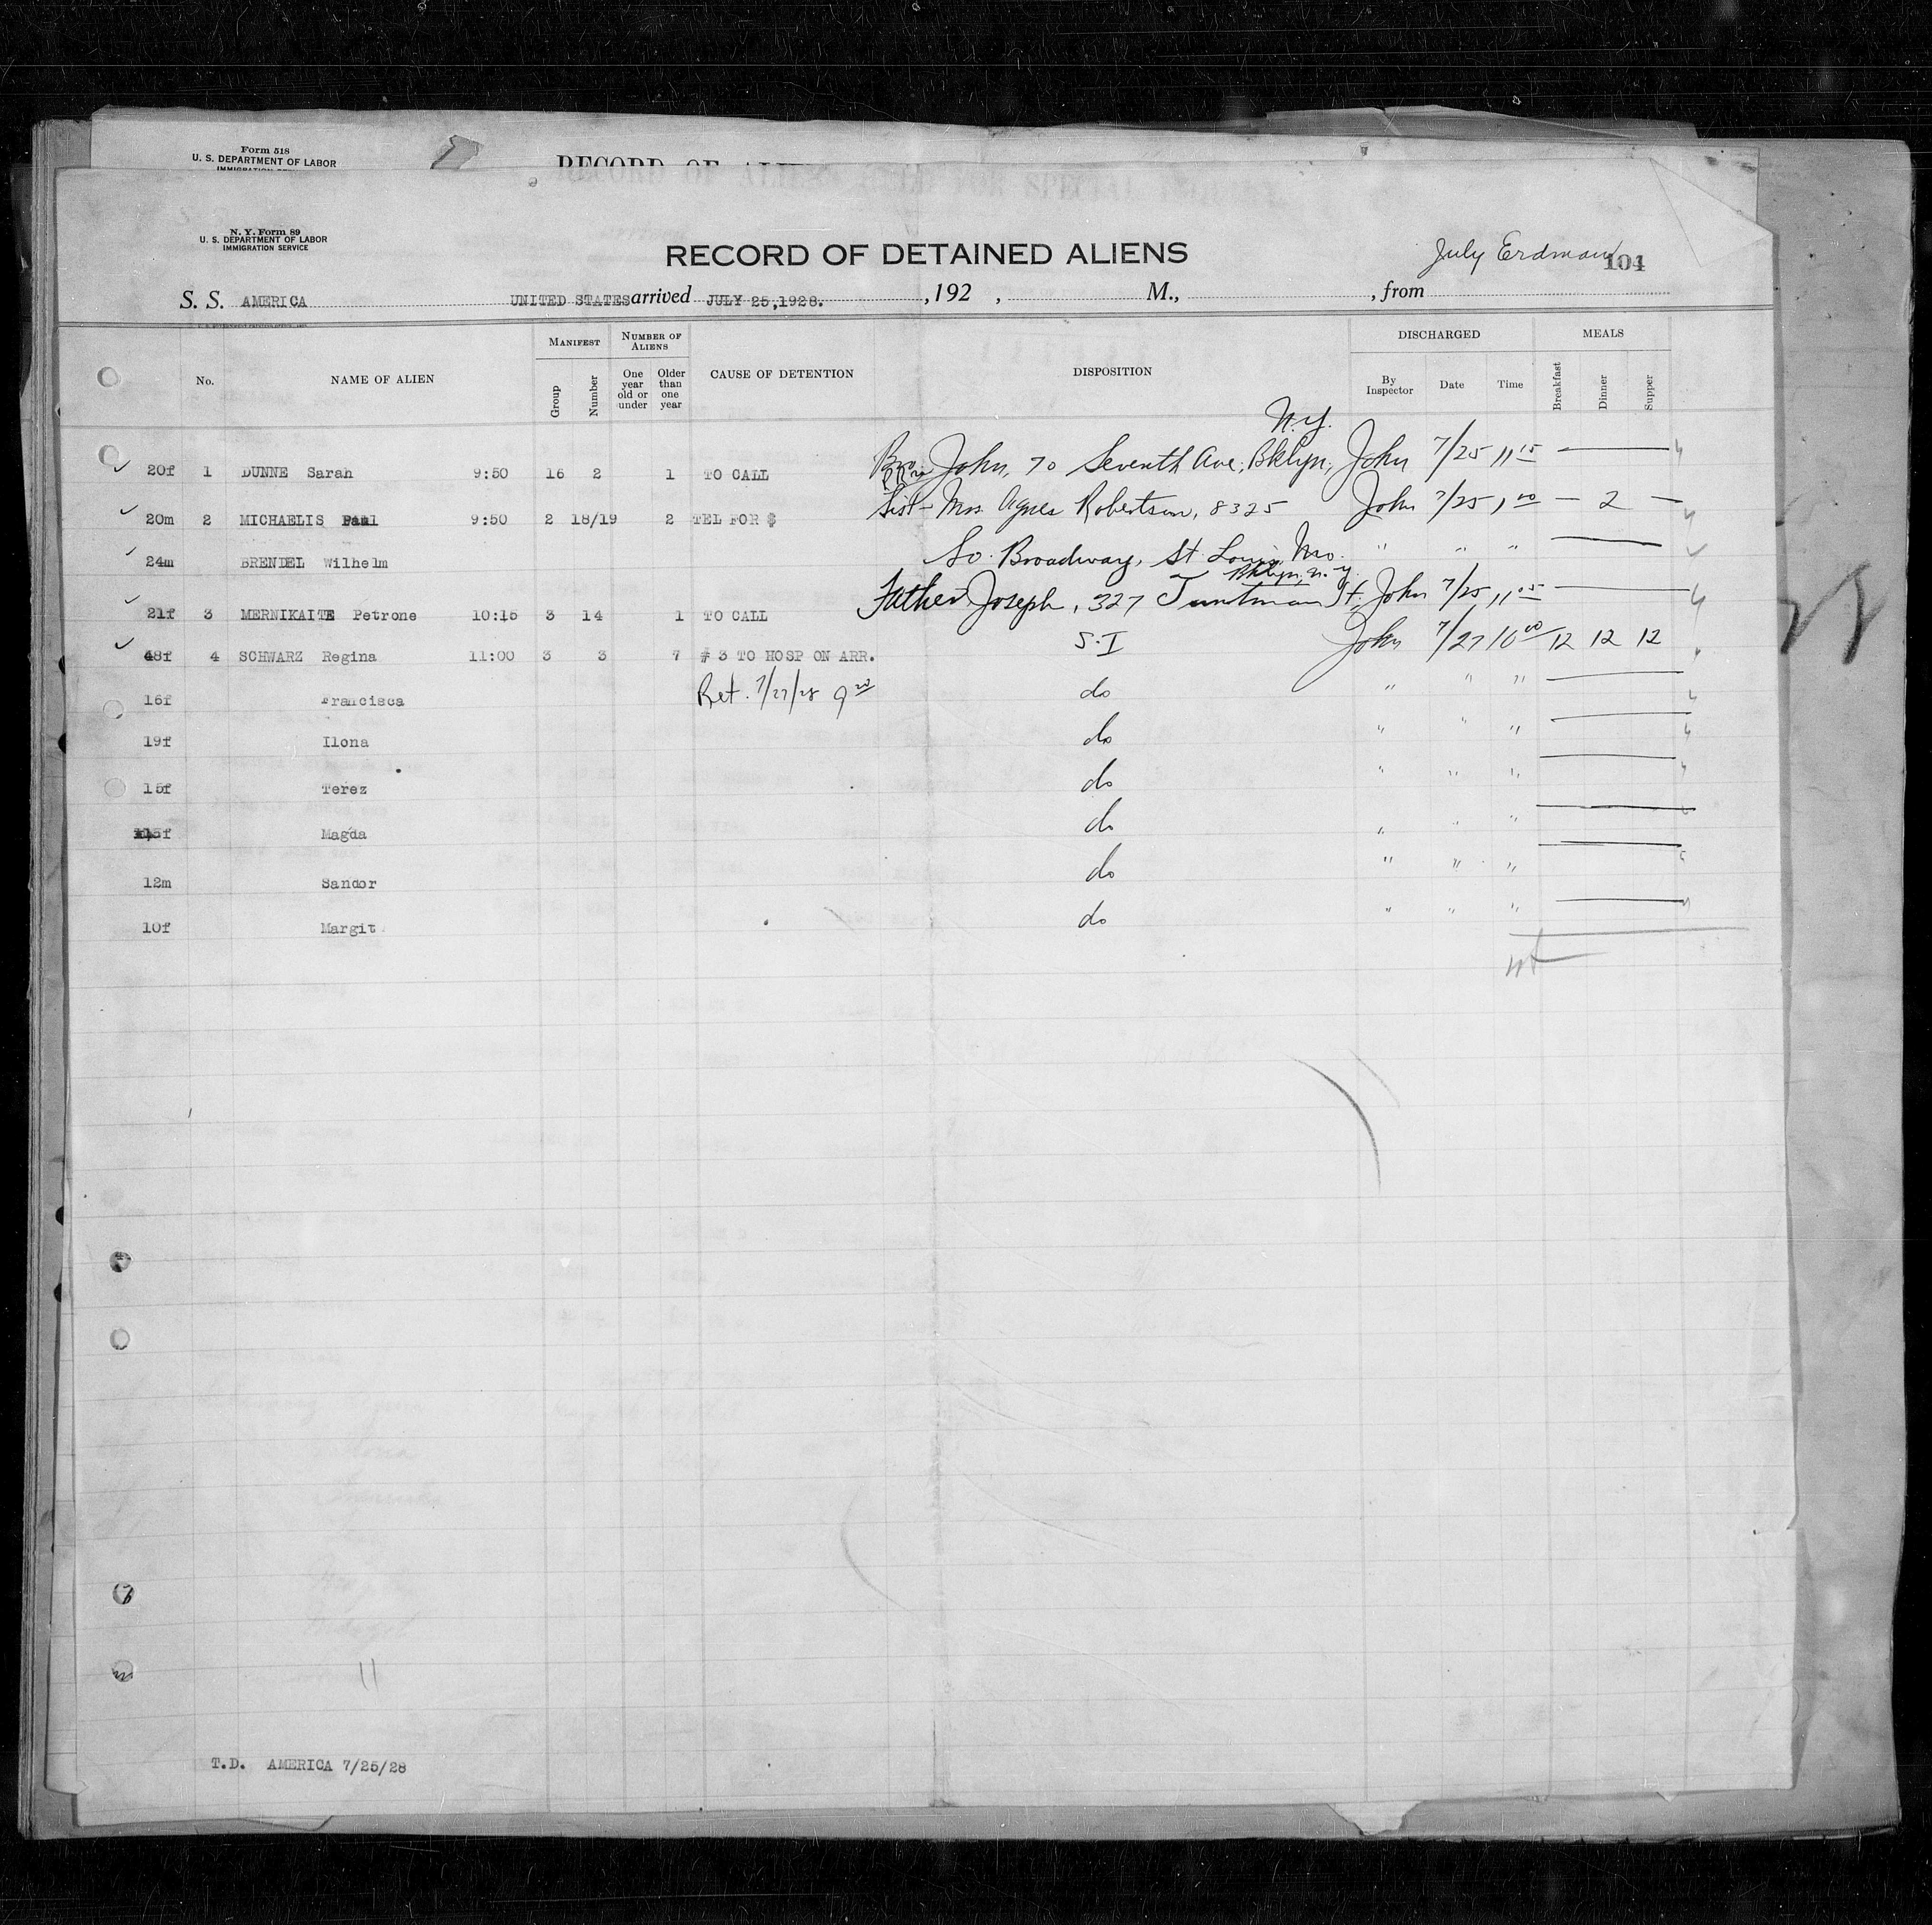 Form 518
U. S. DEPARTMENT OF LABOR
N. Y. Form 89
U. S. DEPARTMENT OF LABOR
IMMIGRATION SERVICE
RECORD OF DETAINED ALIENS
July Erdman 104
S. S. AMERICA UNITED STATES arrived JULY 25,1928. , 192 , M., , from
MANIFEST NUMBER OF ALIENS DISCHARGED MEALS
No. NAME OF ALIEN Group Number One year old or under Older than one year CAUSE OF DETENTION DISPOSITION By Inspector Date Time Breakfast Dinner Supper
N.Y.
20f 1 DUNNE Sarah 9:50 16 2 1 TO CALL Bro John, 70 Seventh Ave, Bklyn, John 7/25 11 15
20m 2 MICHAELIS Paul 9:50 2 18/19 2 TEL FOR $ Sist- Mrs. Agnes Robertson, 8325 John 7/25 1 00 — 2 —
24m BRENDEL Wilhelm So. Broadway, St. Louis, Mo. " " "
Bklyn, N.Y.
21f 3 MERNIKAITE Petrone 10:15 3 14 1 TO CALL Father Joseph, 327 St. John 7/25 11 05
48f 4 SCHWARZ Regina 11:00 3 3 7 # 3 TO HOSP ON ARR. S-I John 7/27 10 00 12 12 12
16f Francisca Ret. 7/27/28 9 20 do " " "
19f Ilona do " " "
15f Terez do " " "
15f Magda do " " "
12m Sandor do " " "
10f Margit do " " "
11
T.D. AMERICA 7/25/28